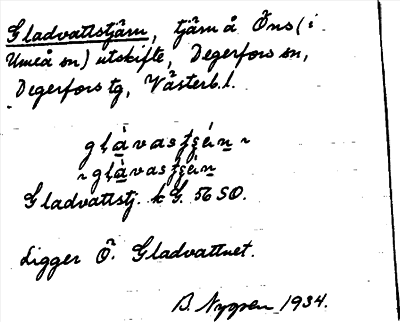 Gladvattstjärn, tjärn å Öns (i
Umeå sn) utskifte, Degerfors sn,
Degerfors tg, Västerb. l.
Gladvattstj. k G. 56 SO.
Ligger Ö. Gladvattnet.
B. Nygren 1934.